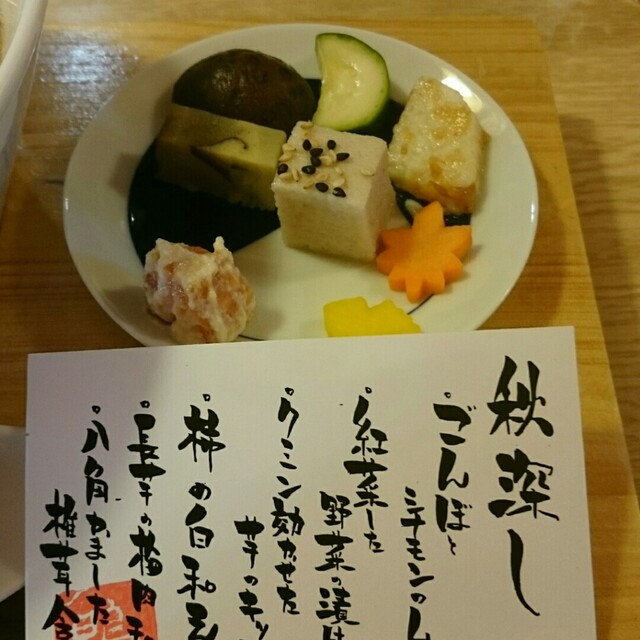 秋深し
・ごんぼと
シナモンの
・紅葉した
野菜の漬け
・クミン効かせた
芋のキッ
・柿の白和え
・長芋の梅肉和
・八角かました
椎茸含